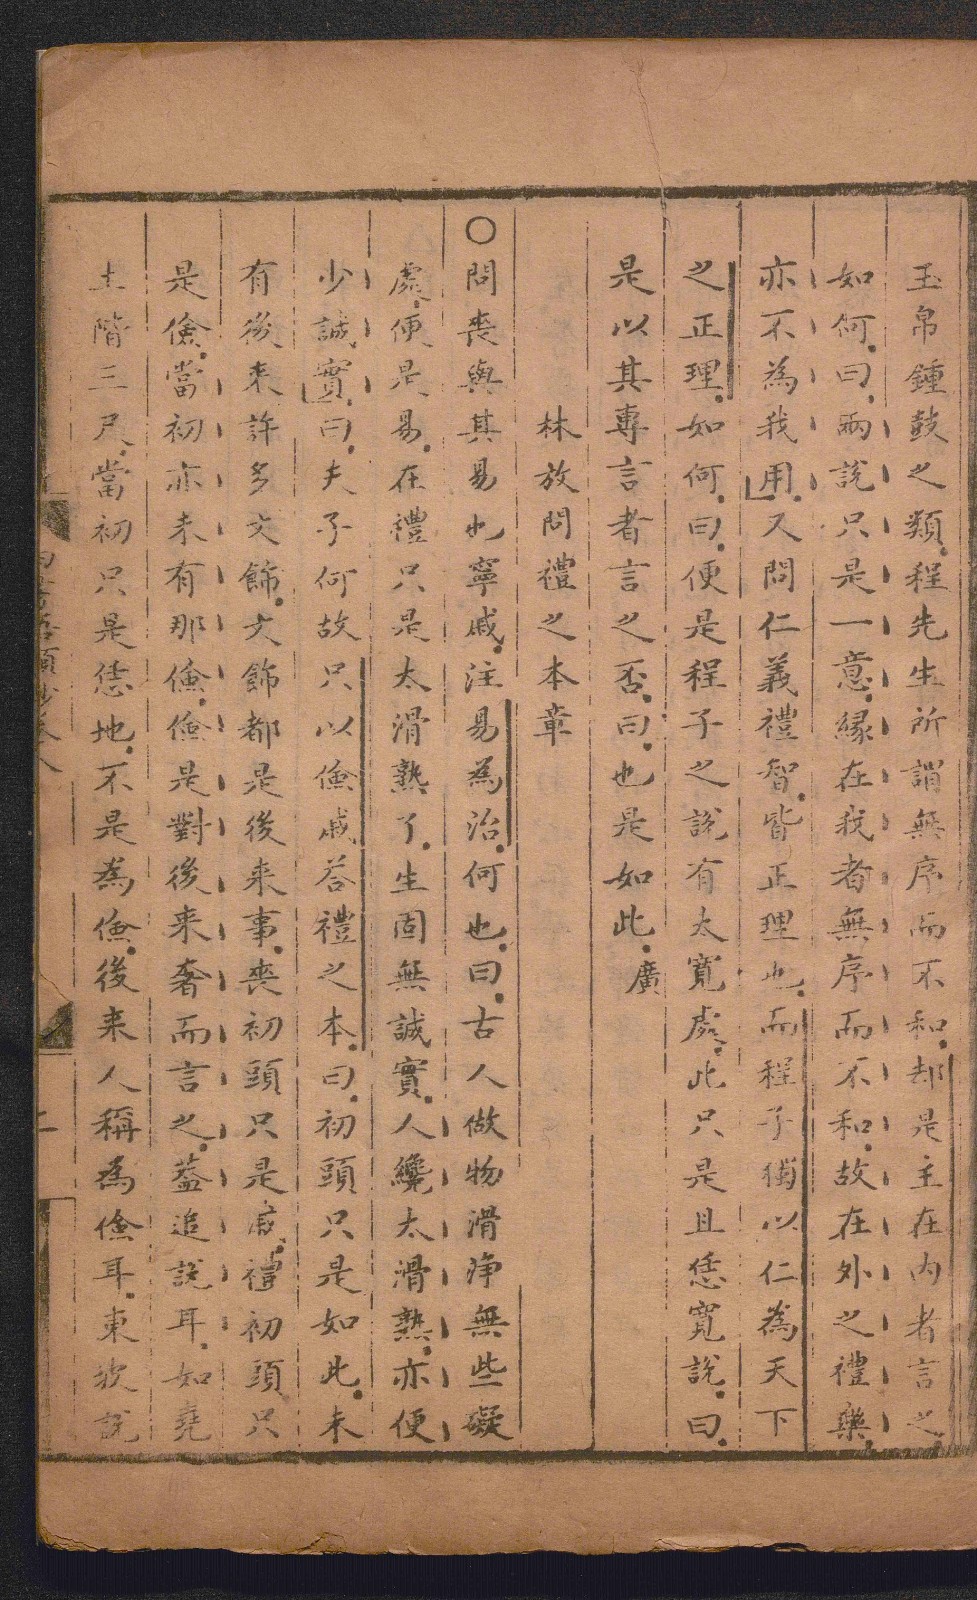 玉帛鍾鼓之類程先生所謂無序而不和却是主在內者言之
如何曰兩說只是一意縁在我者無序而不和故在外之禮樂
亦不為我用又問仁義禮智皆正理也而程子獨以仁為天下
之正理如何曰便是程子之說有太寬處此只是且恁寬說曰
是以其專言者言之否曰也是如此廣
林放問禮之本章
○問喪與其易也寧戚注易為治何也曰古人做物滑净無些礙
處便是易在禮只是太滑熟了生固無誠實人纔太滑熟亦便
少誠實曰夫子何故只以儉戚答禮之本曰初頭只是如此未
有後来許多文飾文飾都是後来事喪初頭只是戚禮初頭只
是儉當初亦未有那儉儉是對後来奢而言之葢追說耳如堯
土階三尺當初只是恁地不是為儉後来人稱為儉耳東坡說
語類 卷八
二